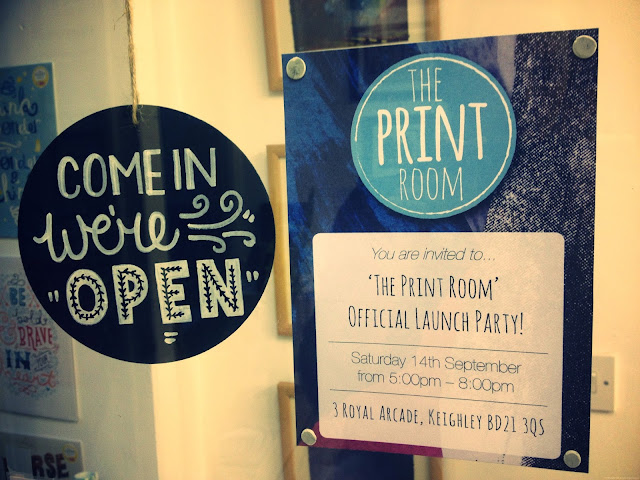 COME IN
We're
"OPEN"
THE
PRINT
ROOM
You are invited to...
'THE PRINT ROOM'
OFFICIAL LAUNCH PARTY!
Saturday 14th September
from 5:00pm – 8:00pm
3 ROYAL ARCADE, KEIGHLEY BD21 3QS
BE
BRAVE
IN
RSE